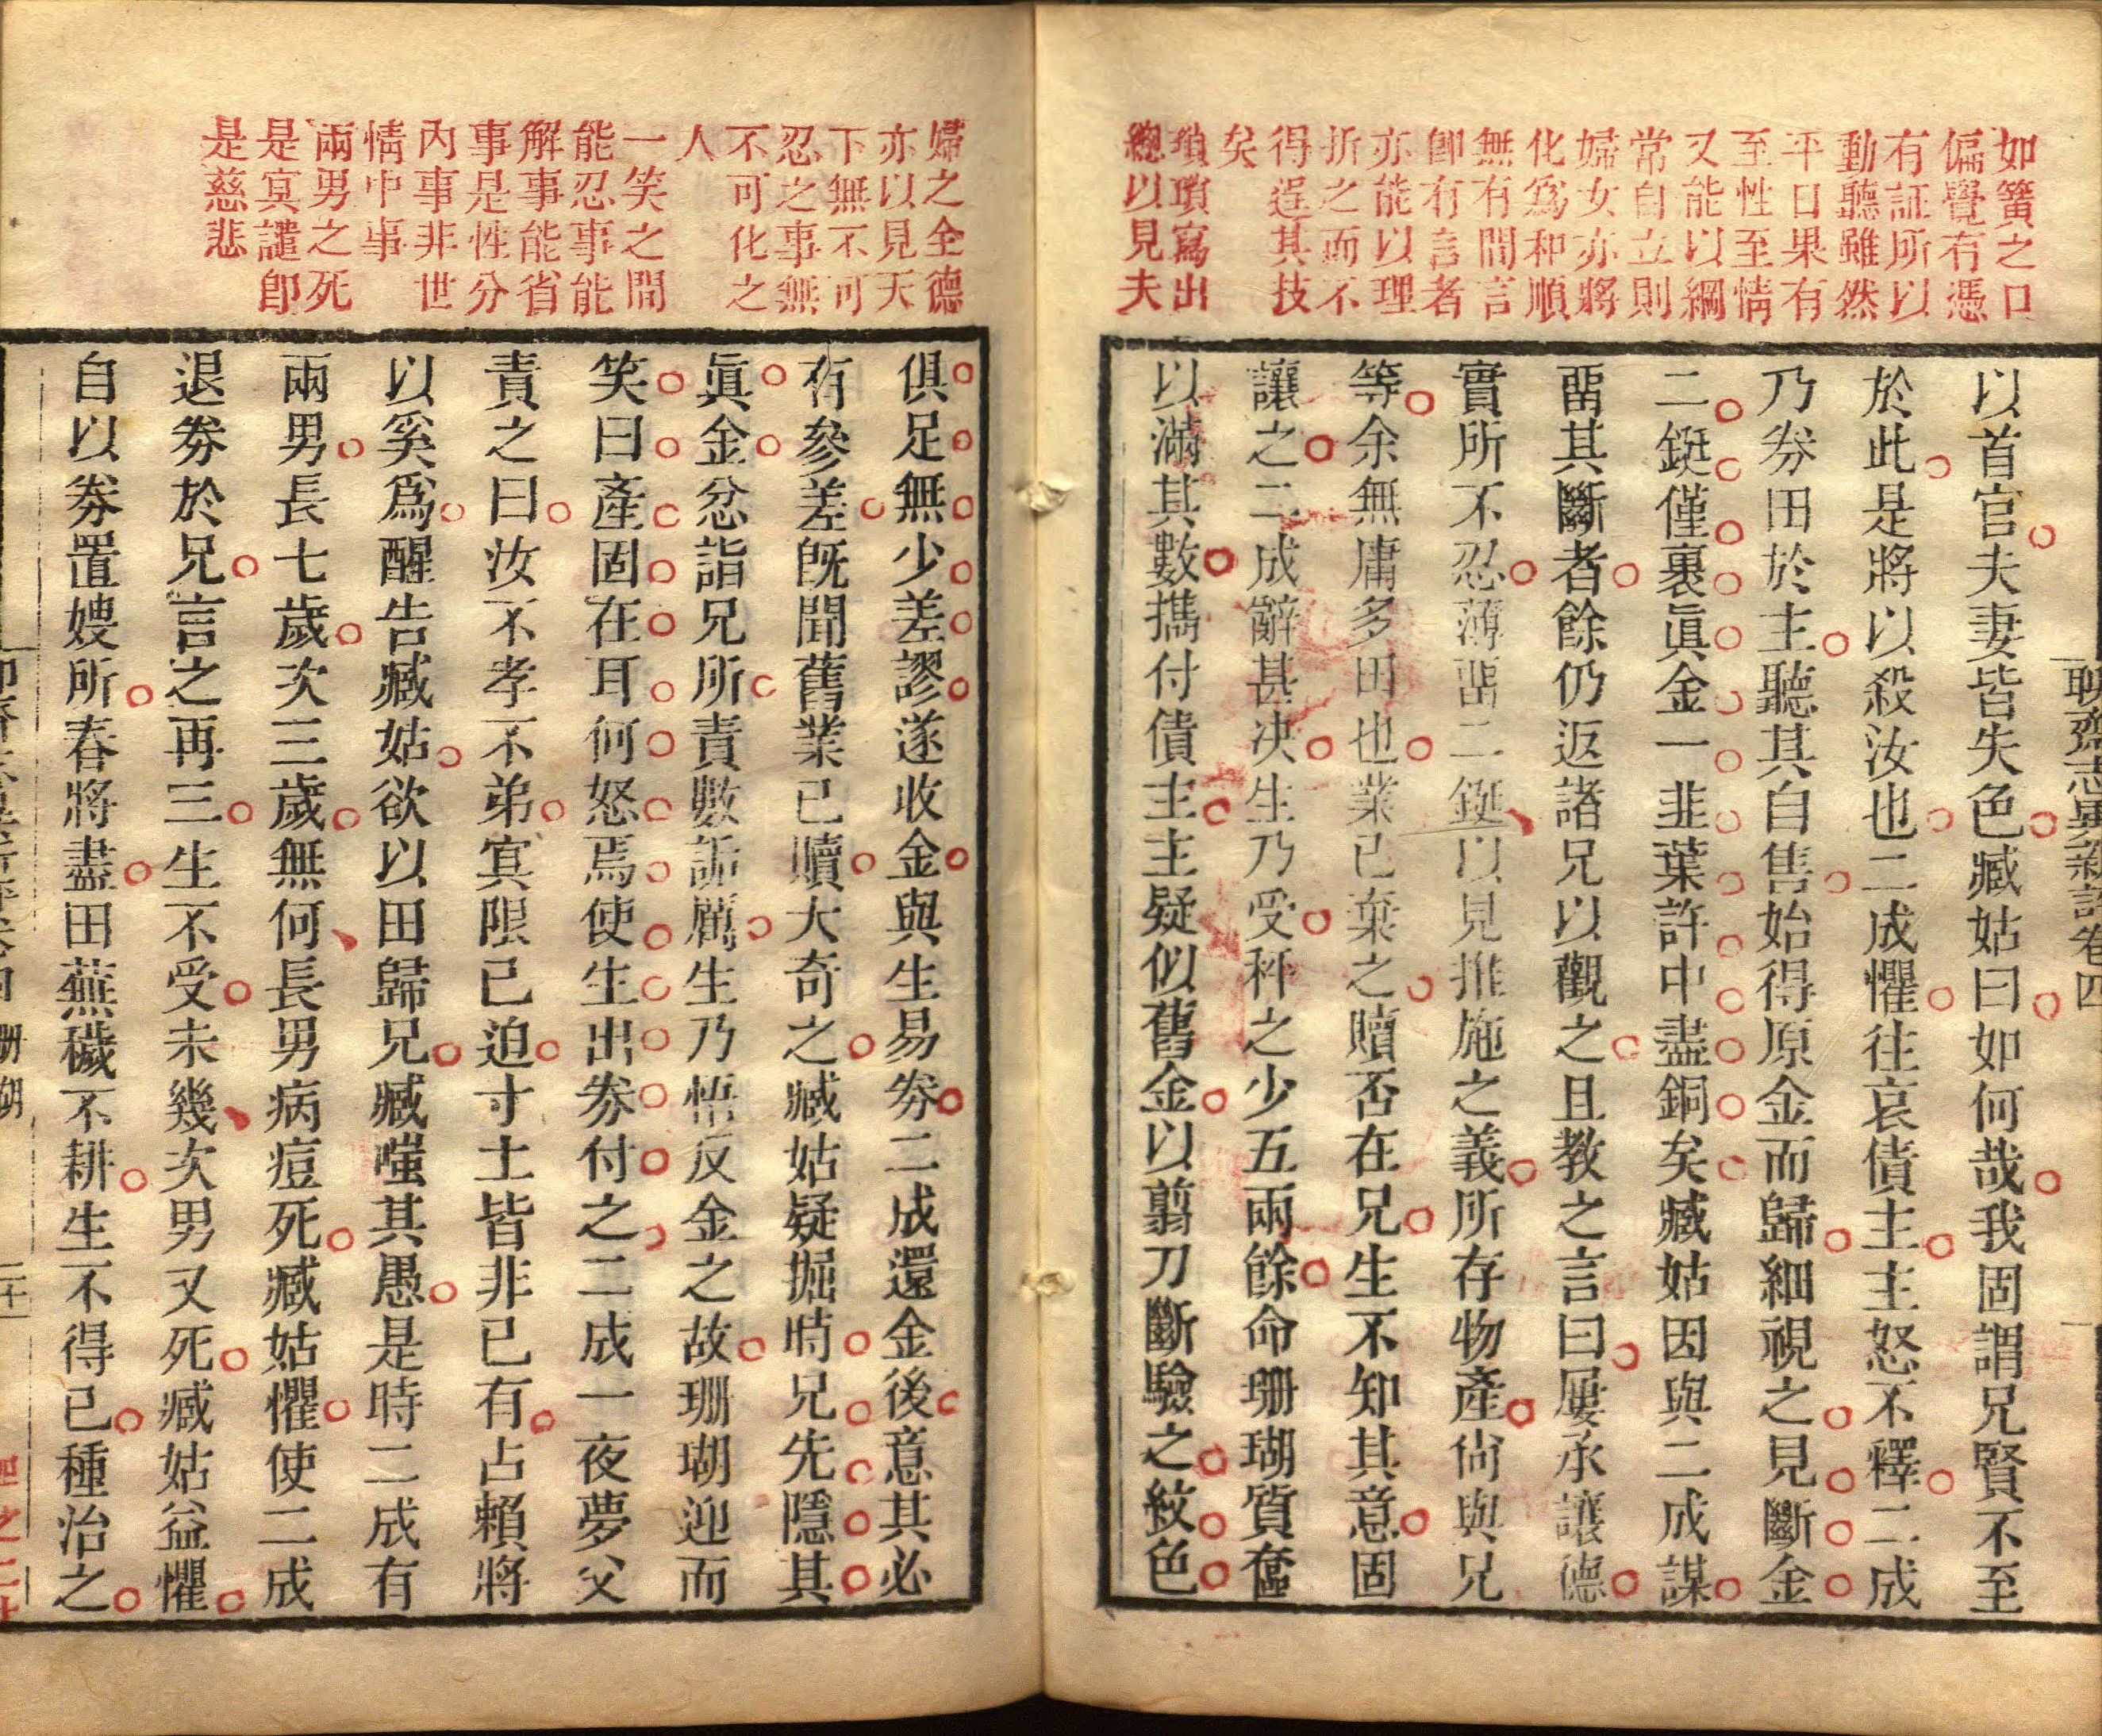 聊齋志異新評卷四
如簧之口
偏覺有憑
有証所以
動聽雖然
平日果有
至性至情
又能以綱
常自立則
婦女亦將
化爲和順
無有間言
卽有言者
亦能以理
折之而不
得逞其技
矣
瑣瑣寫出
總以見夫
以首官夫妻皆失色臧姑曰如何哉我固謂兄賢不至
於此是將以殺汝也二成懼往哀債主主怒不釋二成
乃券田於主聽其自售始得原金而歸細視之見斷金
二鋌僅裹眞金一韭葉許中盡銅矣臧姑因與二成謀
畱其斷者餘仍返諸兄以觀之且教之言曰屢承讓德
實所不忍薄畱二鋌以見推施之義所存物產尙與兄
等余無庸多田也業已棄之贖否在兄生不知其意固
讓之二成辭甚决生乃受秤之少五兩餘命珊瑚質奩
以滿其數攜付債主主疑似舊金以翦刀斷驗之紋色
婦之全德
亦以見天
下無不可
忍之事無
不可化之
人
一笑之間
能忍事能
解事能省
事是性分
內事非世
情中事
兩男之死
是冥譴卽
是慈悲
俱足無少差謬遂收金與生易券二成還金後意其必
有參差旣聞舊業已贖大奇之臧姑疑掘時兄先隱其
眞金忿詣兄所責數詬厲生乃悟反金之故珊瑚迎而
笑曰產固在耳何怒焉使生出券付之二成一夜夢父
責之曰汝不孝不弟冥限已迫寸土皆非己有占賴將
以奚爲醒告臧姑欲以田歸兄臧嗤其愚是時二成有
兩男長七歲次三歲無何長男病痘死臧姑懼使二成
退券於兄言之再三生不受未幾次男又死臧姑益懼
自以券置嫂所春將盡田蕪穢不耕生不得已種治之
珊瑚